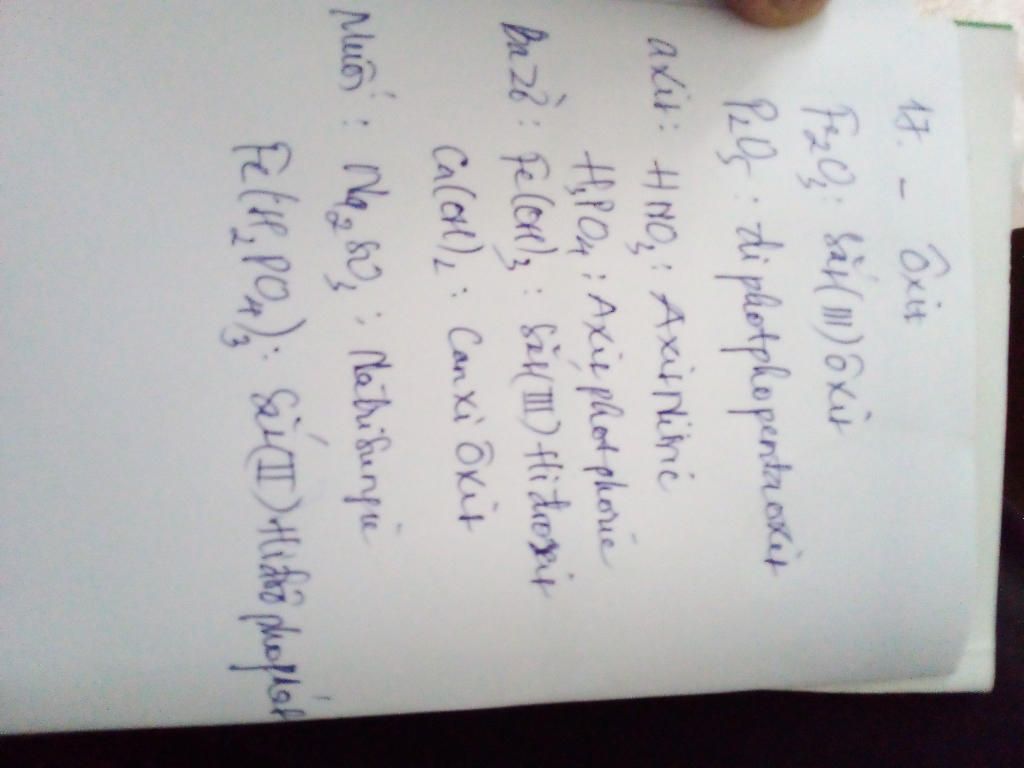 17. - Ôxit
Fe2O3: Sắt(III)ôxit
P2O5: điphotphopentaoxit
axit: HNO3: Axit Nitric
H3PO4: Axit photphoric
Bazơ: Fe(OH)3: Sắt(III)Hiđroxit
Ca(OH)2: Canxi Ôxit
Muối: Na2SO3: Natri
Fe(H2PO4)3: Sắt(II)Hiđrô photphát